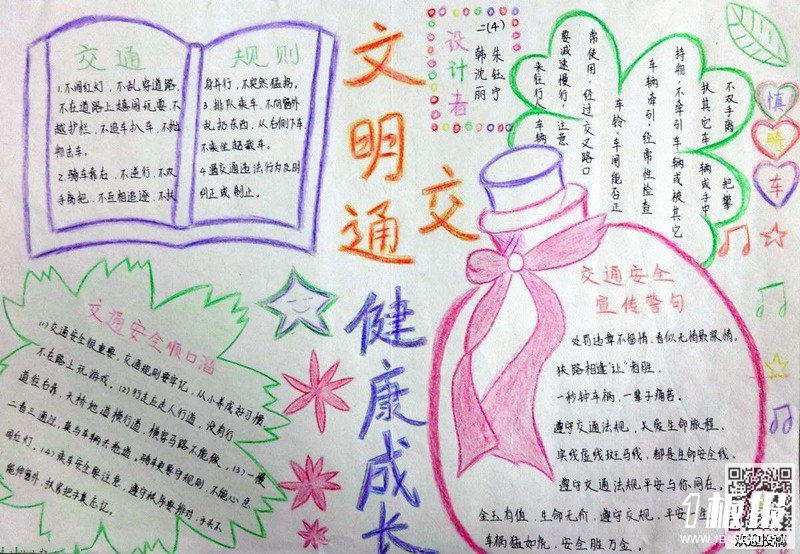 交通
规则
1.不闯红灯，不乱穿道路，
不在道路上嬉闹玩耍，不
越护栏，不追车扒车，不抛
物击车。
2.骑车靠右，不逆行，不双
手离把，不互相追逐，不扶
身并行，不突然猛拐。
3.排队乘车，不向窗外
乱扔东西，从右侧下车，
不乘坐超载车。
4.遇交通违法行为及时
纠正或制止。
文明交通
健康成长
二(4)
朱钰宁
韩沈丽
设计者
慎骑车
不双手离把，攀
扶其它车辆或手中
持物，不牵引车辆或被其它
车辆牵引，经常性检查
车铃、车闸能否正
常使用，经过交叉路口
要减速慢行，注意
来往行人、车辆
交通安全顺口溜
(1)交通安全很重要，交通规则要牢记，从小养成好习惯，
不在路上玩游戏。(2)行走应走人行道，没有行
道往右靠，天桥地道横行道，横穿马路不能做。(3)一慢
二看三通过，莫与车辆去抢道。骑车更要守规则，不能心急
闯红灯。(4)乘车安全要注意，遵守秩序要排队，手头不
能伸窗外，扶紧把手莫忘记。
交通安全
宣传警句
处罚违章不留情，看似无情最深情。
狭路相逢“让”者胜。
一秒钟车祸，一辈子痛苦。
遵守交通法规，关爱生命旅程。
实线虚线斑马线，都是生命安全线。
遵守交通法规，平安与你同在。
金玉有值，生命无价，遵守交规，平安
车祸猛如虎，安全胜万金。
1板报
欢迎投稿